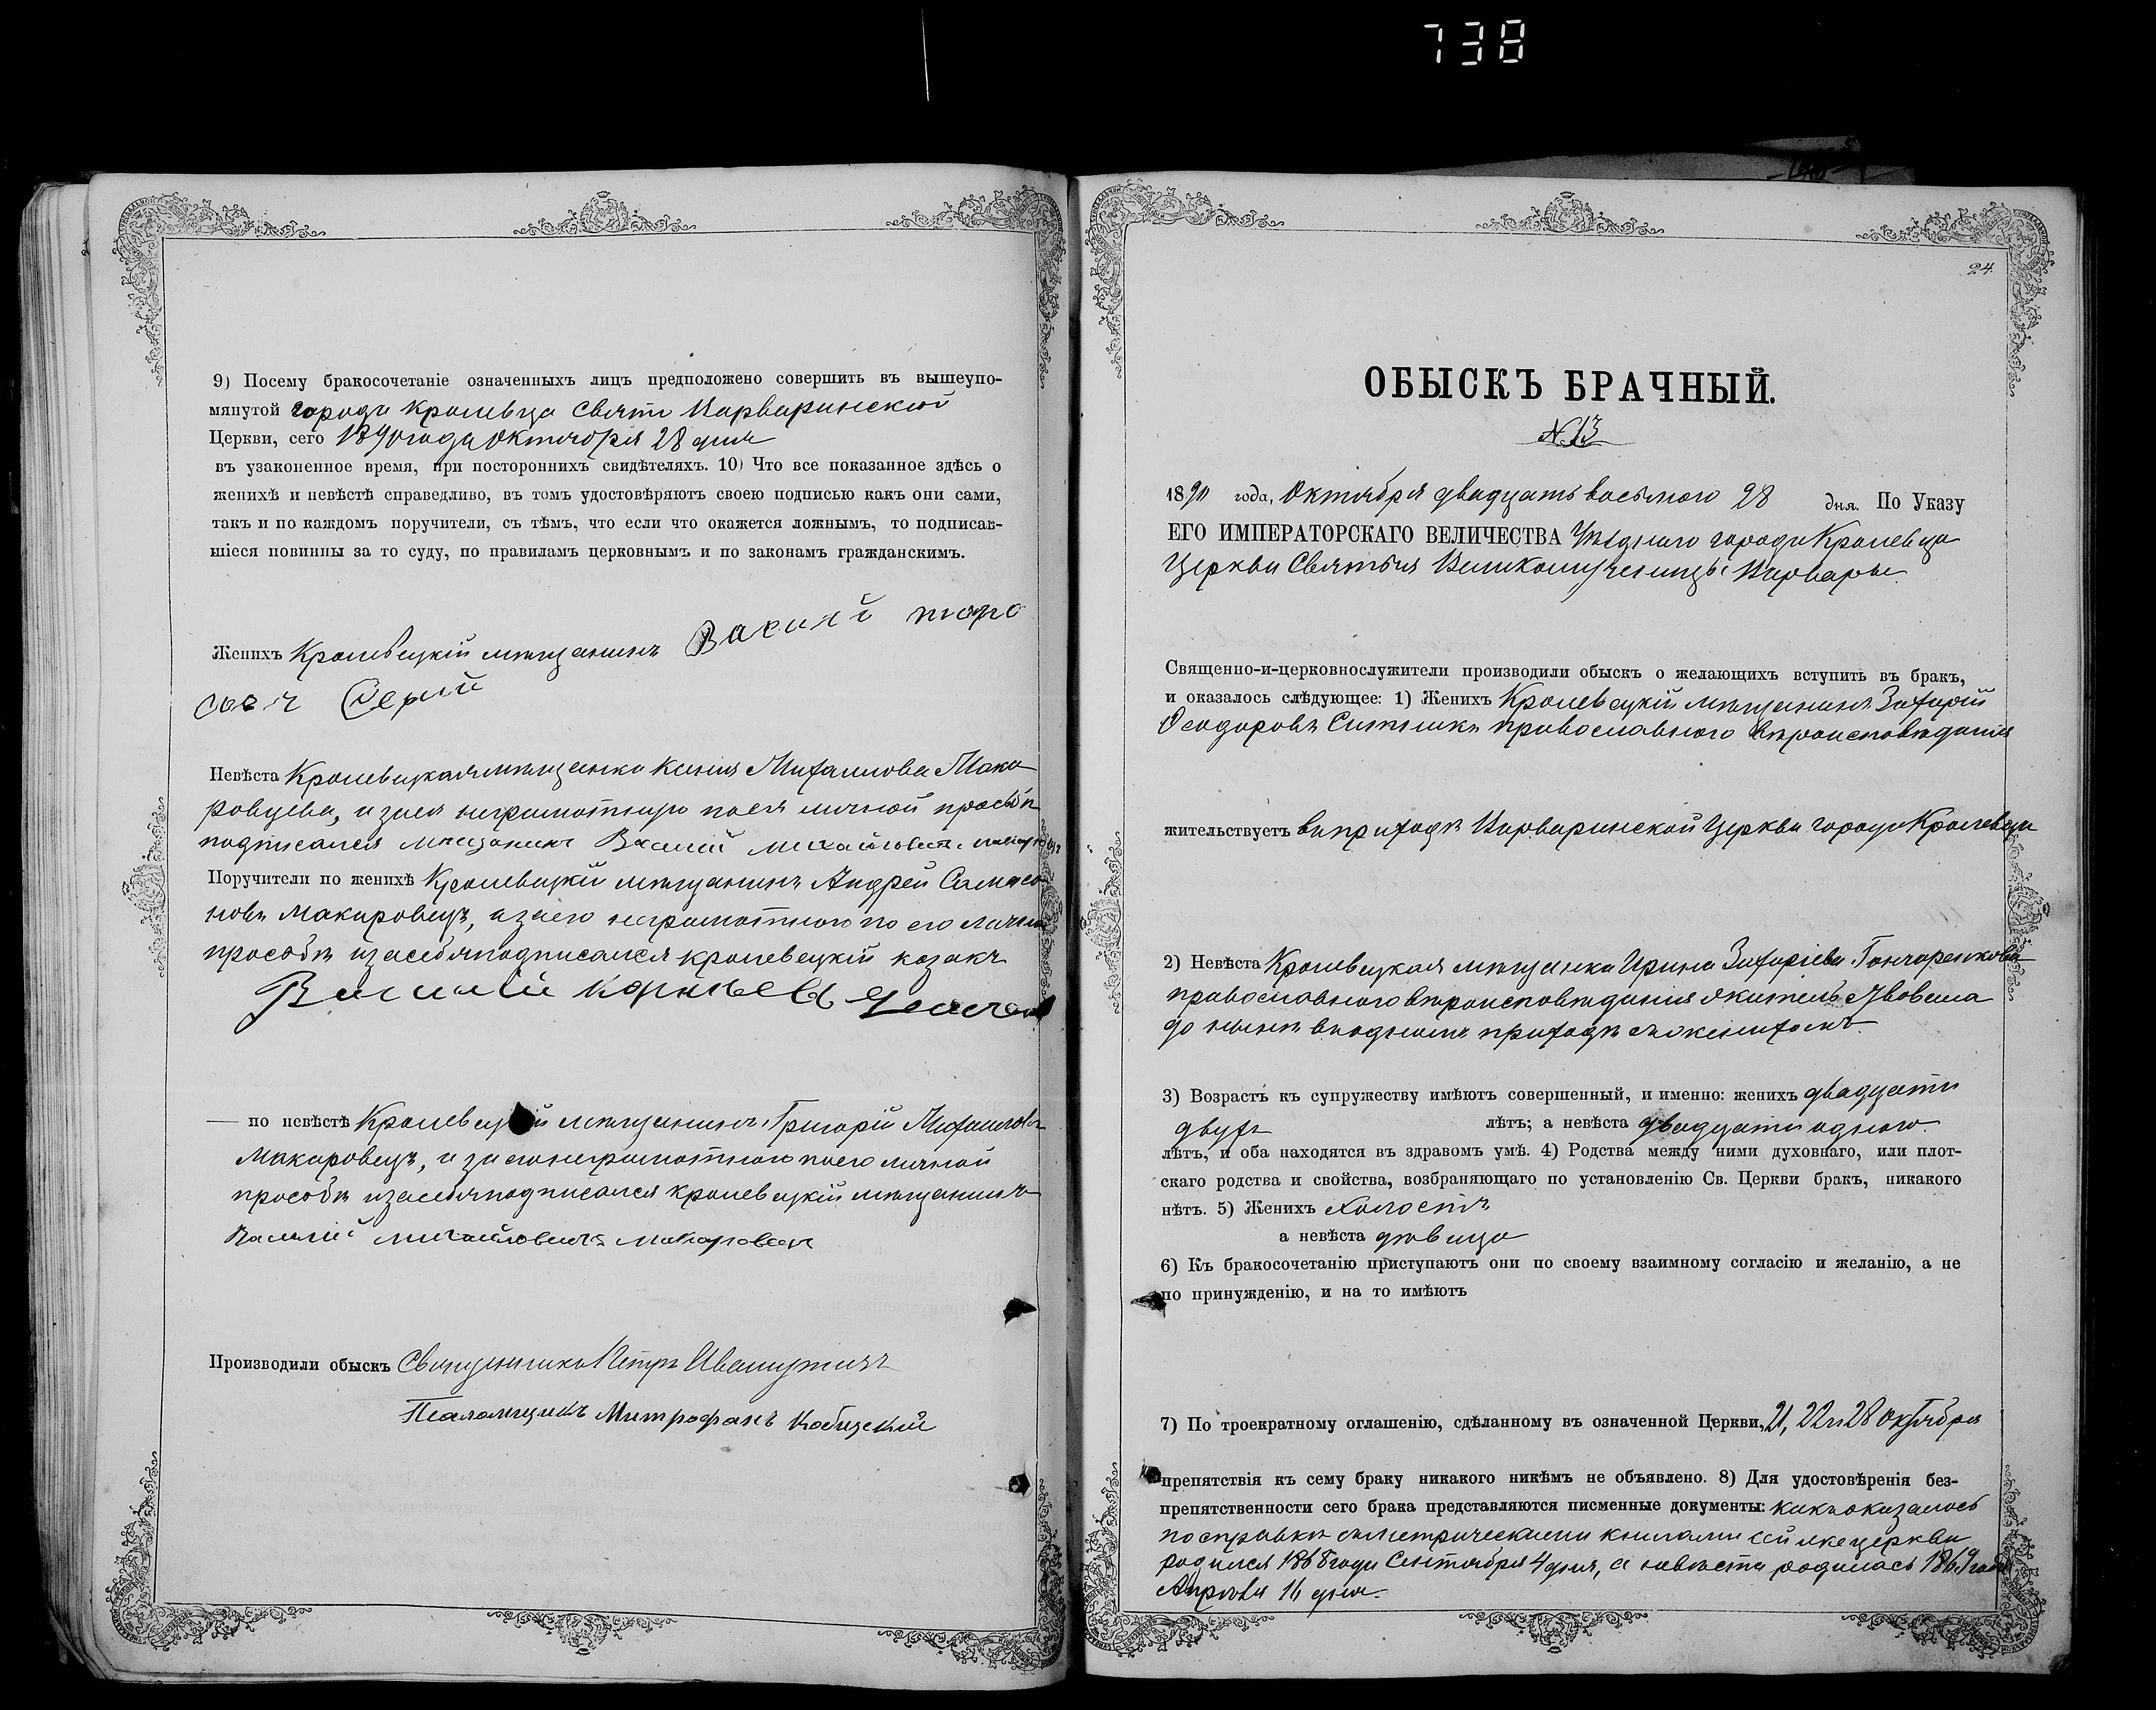 738
9) Посему бракосочетаніе означенныхъ лицъ предположено совершить въ вышеупо-
мянутой города Кролевца Свято Варваринской
Церкви, сего 1890 года Октября 28 дня
въ узаконенное время, при постороннихъ свидѣтеляхъ. 10) Что все показанное здѣсь о
женихѣ и невѣстѣ справедливо, въ томъ удостовѣряютъ своею подписью какъ они сами,
такъ и по каждомъ поручители, съ тѣмъ, что если что окажется ложнымъ, то подписав-
шіеся повинны за то суду, по правиламъ церковнымъ и по законамъ гражданскимъ.
Женихъ Кролевецкій мѣщанинъ
Серый
Невѣста Кролевецкая мѣщанка Ксенія Михаилова Мака
ровцева, а за ея неграмотную по ея личной просьбѣ
подписался мещанинъ Василій
Поручители по женихѣ Кролевецкій мѣщанинъ Андрей Самсо
новъ Макаровецъ, а за его неграмотного по его личной
прособѣ и за себя подписался кролевецкій козакъ
Василий
— по невѣстѣ Кролевецкій мѣщанинъ Григорій Михаиловъ
Макаровецъ, а за его неграмотного по его личной
прособѣ и за себя подписался кролевецкій мѣщанинъ
Василий Михайловичъ Макаровецъ
Производили обыскъ Священникъ Петръ
Псаломщикъ Митрофанъ
24
ОБЫСКЪ БРАЧНЫЙ.
N. 13
1890 года, Октября двадцать восьмого 28 дня. По Указу
ЕГО ИМПЕРАТОРСКАГО ВЕЛИЧЕСТВА Уѣзднаго города Кролевца
Церкви Святыя Великомученицы Варвары.
Священно-и-церковнослужители производили обыскъ о желающихъ вступить въ бракъ,
и оказалось слѣдующее: 1) Женихъ Кролевецкій мѣщанинъ Захарій
Феодоровъ православного вѣроисповѣданія
жительствуетъ въ приходѣ Варваринской Церкви города Кролевца
2) Невѣста Кролевецкая мѣщанка Ирина Захаріева Гончаренкова
православного вѣроисповѣданія жительствовала
до нынѣ въ одномъ приходѣ съ женихомъ.
3) Возрастъ къ супружеству имѣютъ совершенный, и именно: женихъ двадцати
двухъ лѣтъ; а невѣста двадцати одного
лѣтъ, и оба находятся въ здравомъ умѣ. 4) Родства между ними духовнаго, или плот-
скаго родства и свойства, возбраняющаго по установленію Св. Церкви бракъ, никакого
нѣтъ. 5) Женихъ холостъ
а невѣста дѣвица
6) Къ бракосочетанію приступаютъ они по своему взаимному согласію и желанію, а не
по принужденію, и на то имѣютъ
7) По троекратному оглашенію, сдѣланному въ означенной Церкви, 21, 22 и 28 Октября
препятствія къ сему браку никакого никѣмъ не объявлено. 8) Для удостовѣренія без-
препятственности сего брака представляются писменные документы: какъ оказалось
по справкѣ съ метрическими книгами сей же церкви
родился 1868 года Сентября 4 дня, а невѣста родилась 1869 года
Апрѣля 16 дня.